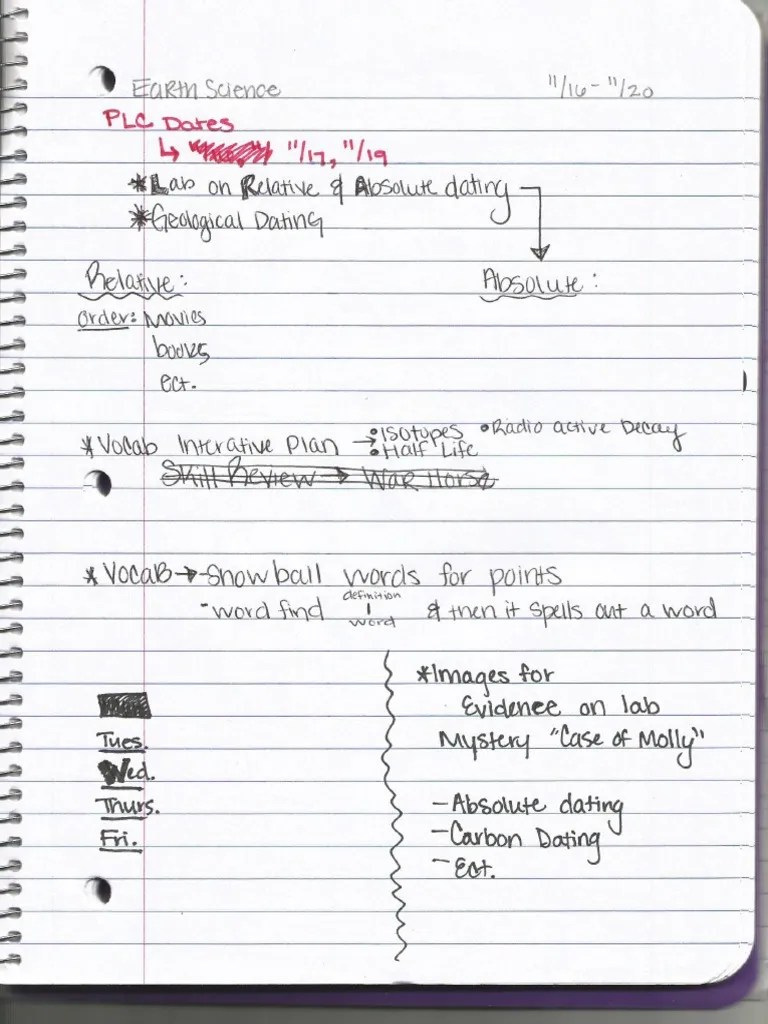 Earth Science 11/16 - 11/20
PLC Dates
↳ 11/17, 11/19
*Lab on Relative & Absolute dating
*Geological Dating
Relative: Absolute:
order: Movies
books
ect.
*Vocab Interative Plan → •Isotopes •Radio active Decay
•Half Life
Skill Review → War Horse
*Vocab → -Snowball words for points
-word find definition / word & then it spells out a word
*Images for
Evidence on lab
Mystery "Case of Molly"
Tues.
Wed.
Thurs.
Fri.
-Absolute dating
-Carbon Dating
-Ect.